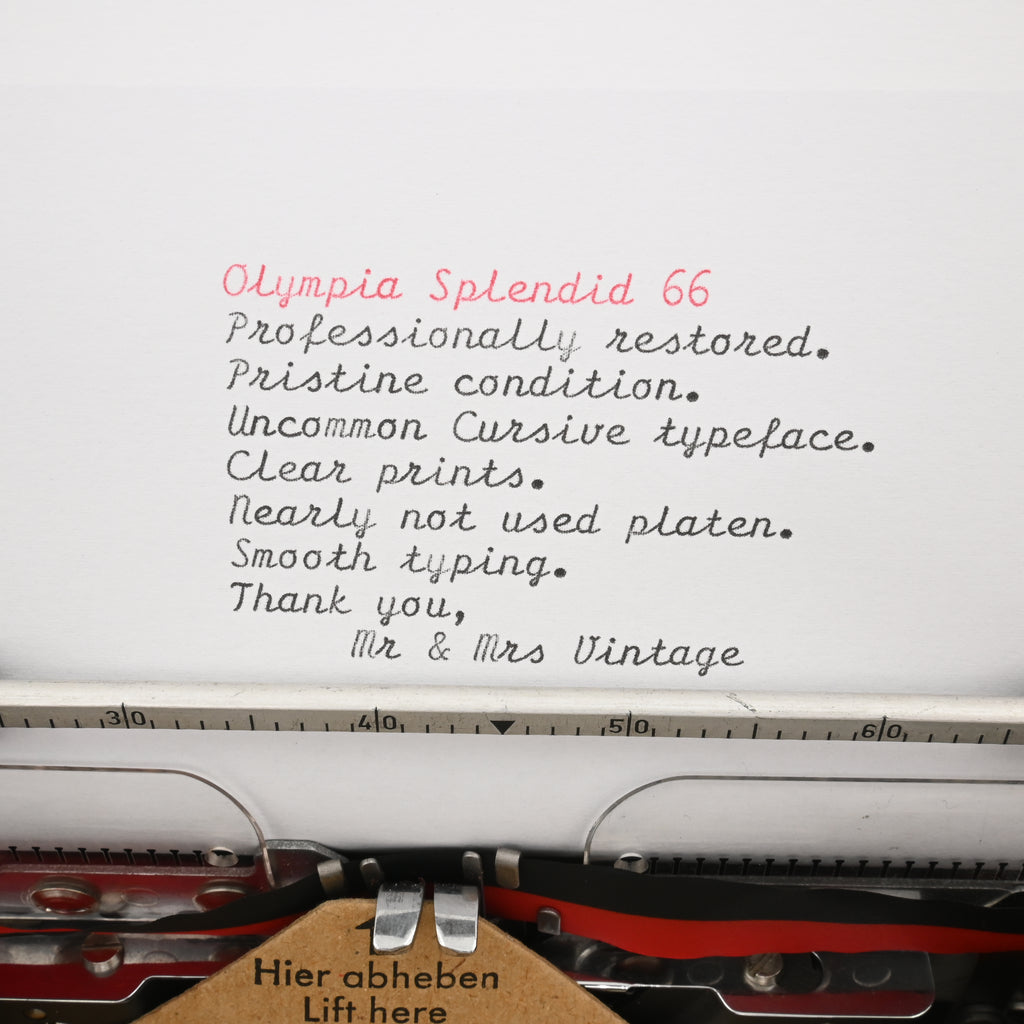 Olympia Splendid 66
Professionally restored.
Pristine condition.
Uncommon Cursive typeface.
Clear prints.
Nearly not used platen.
Smooth typing.
Thank you,
Mr & Mrs Vintage
30 40 50 60
Hier abheben
Lift here